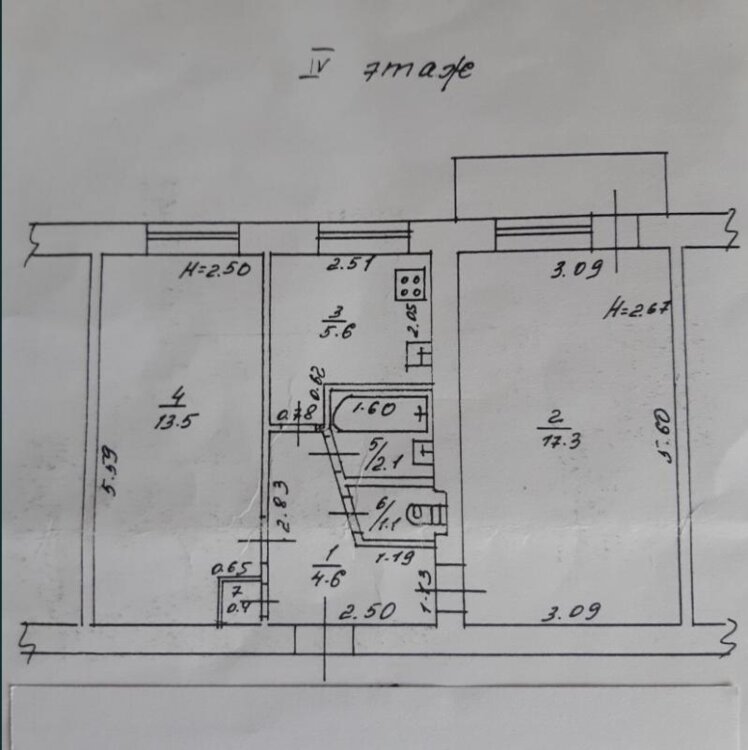 IV этаже
H=2.50
2.51
3.09
3
5.6
2.05
H=2.67
0.62
4
13.5
0.78
1.60
2
17.3
5.60
5.59
5/2.1
2.83
6/1.1
1.19
1
4.6
0.65
7
0.4
1.13
2.50
3.09